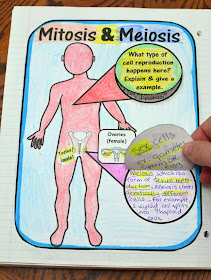 Mitosis & Meiosis
What type of
cell reproduction
happens here?
Explain & give a
example.
Ovaries
(female)
Testes
(male)
Sex cells
or gametes
Meiosis, which is a
form of sexual repro-
duction. Meiosis creates
genetically different
cells. For example,
1 diploid cell splits
into 4 haploid
cells